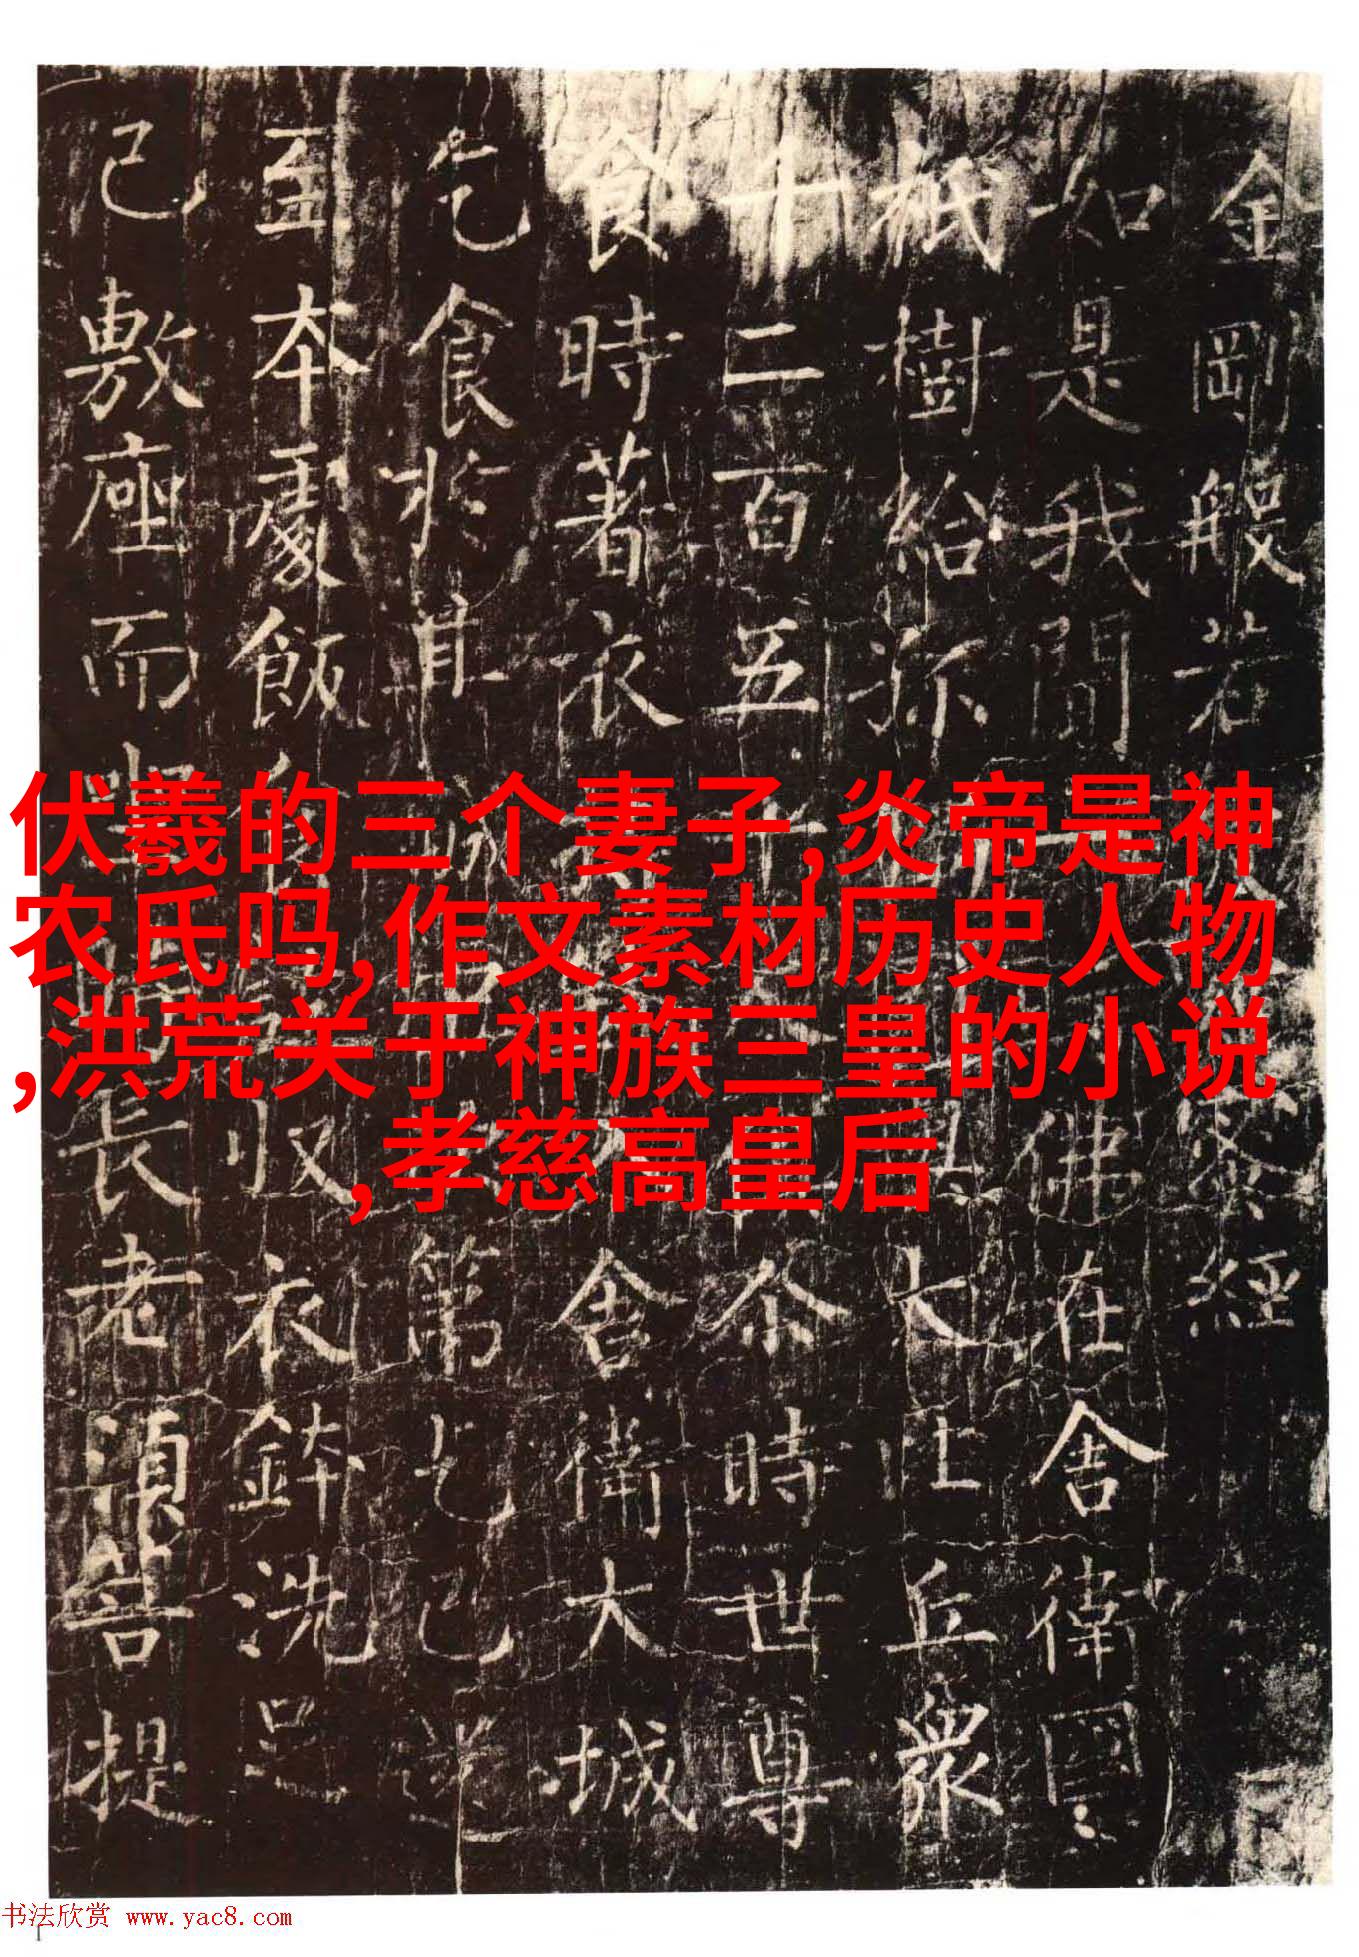 金剛般若蜜經
如是我聞一佛在舍衛國
祇樹給孤大比丘衆
千二百五十尒時世尊
食時著衣舍衛大城
乞食於其城第乞已還
至本處飯收衣鉢洗足
已敷座而坐長老須菩提
伏羲的三个妻子,炎帝是神
农氏吗,作文素材历史人物
,洪荒关于神族三皇的小说
,孝慈高皇后
书法欣赏 www.yac8.com